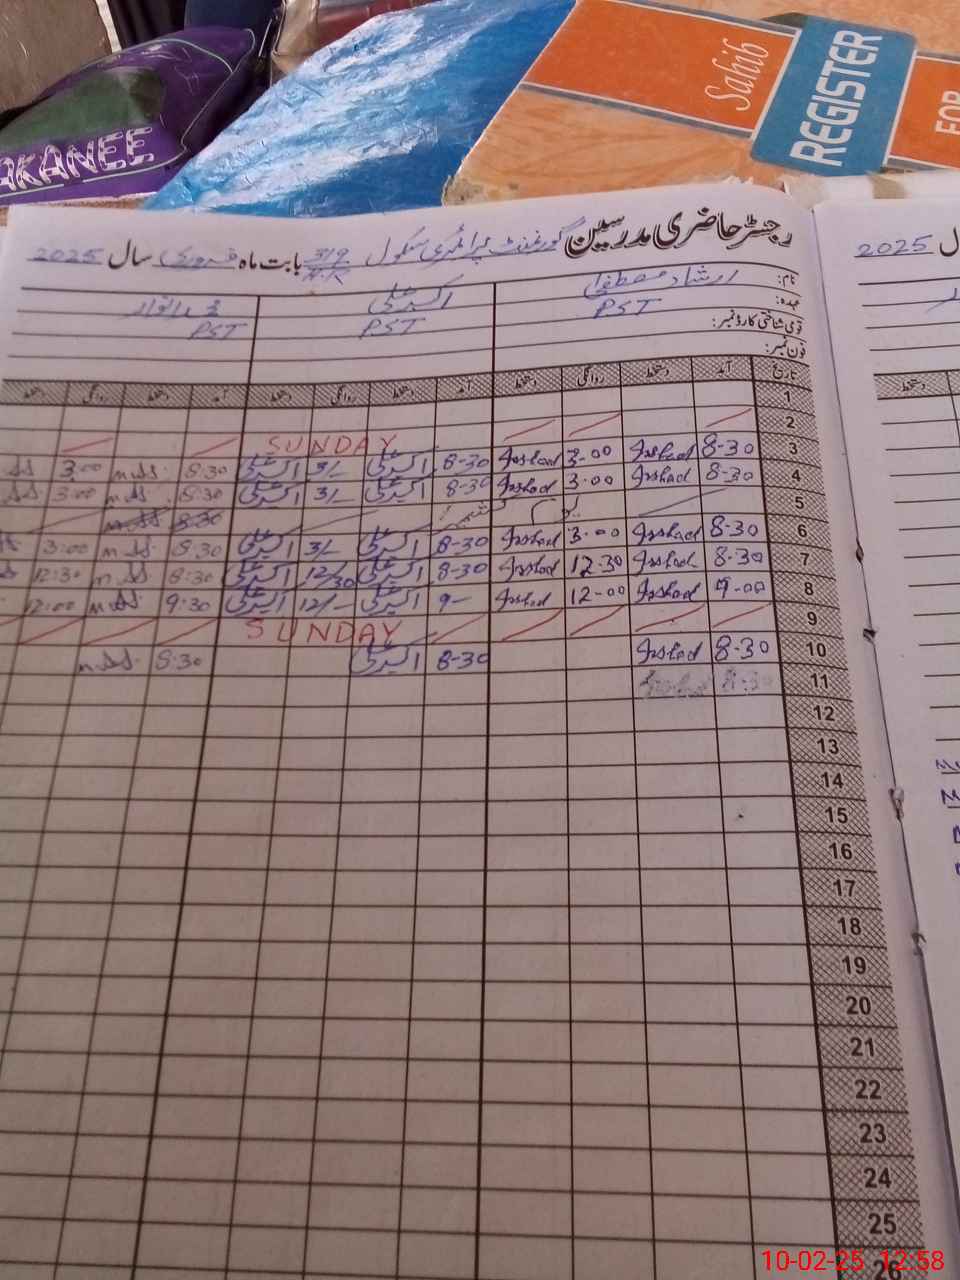 AKANEE
Sahib
REGISTER
FOR
رجسٹر حاضری مدرسین گورنمنٹ پرائمری سکول 319 بابت ماہ فروری سال 2025
2025
نام: ارشاد مصطفی اکبر علی
عہدہ: PST PST PST
قومی شناختی کارڈ نمبر:
فون نمبر:
تاریخ آمد دستخط روانگی دستخط آمد دستخط روانگی دستخط آمد دستخط روانگی دستخط
1
2 SUNDAY
3 8-30 Irshad 3-00 Irshad 8-30 اکبر علی 3/- اکبر علی 8:30 3:00
4 8-30 Irshad 3-00 Irshad 8-30 اکبر علی 3/- اکبر علی 8:30 3:00
5 یوم کشمیر 8:30
6 8-30 Irshad 3-00 Irshad 8-30 اکبر علی 3/- اکبر علی 8:30 3:00
7 8-30 Irshad 12-30 Irshad 8-30 اکبر علی 12/30 اکبر علی 8:30 12:30
8 9-00 Irshad 12-00 Irshad 9- اکبر علی 12/- اکبر علی 9:30 12:00
9 SUNDAY
10 8-30 Irshad 8-30 اکبر علی 8:30
11 8-30
12
13
14
15
16
17
18
19
20
21
22
23
24
25
26
10-02-25 12:58